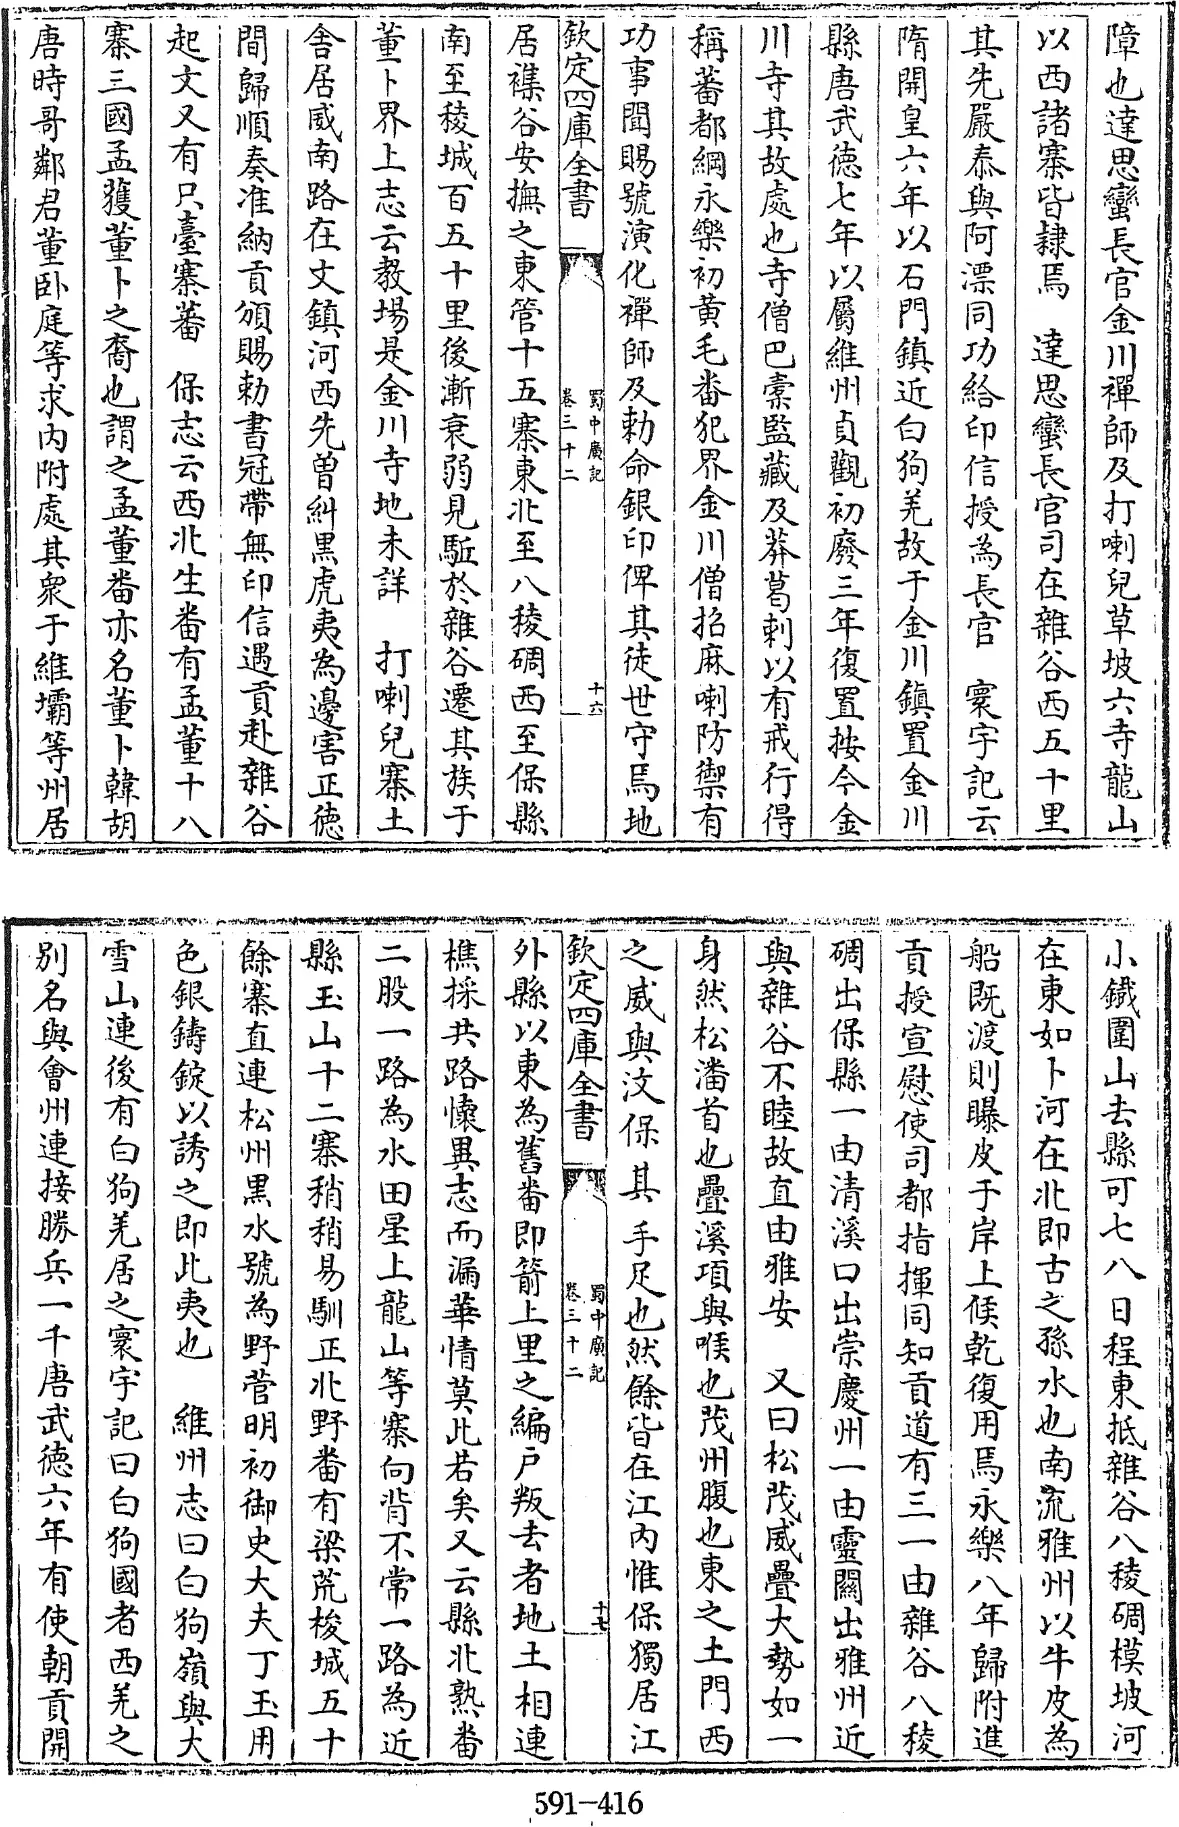 障也達思蠻長官金川禪師及打喇兒草坡六寺龍山
以西諸寨皆隸焉　達思蠻長官司在雜谷西五十里
其先嚴泰與阿漂同功給印信授為長官　寰宇記云
隋開皇六年以石門鎮近白狗羌故于金川鎮置金川
縣唐武德七年以屬維州貞觀初廢三年復置按今金
川寺其故處也寺僧巴橐監藏及莽葛剌以有戒行得
稱蕃都綱永樂初黄毛畨犯界金川僧招麻喇防禦有
功事聞賜號演化禪師及勅命銀印俾其徒世守焉地
欽定四庫全書
蜀中廣記
卷三十二
十六
居襍谷安撫之東管十五寨東北至八稜碉西至保縣
南至稜城百五十里後漸衰弱見駈於雜谷遷其族于
董卜界上志云教場是金川寺地未詳　打喇兒寨土
舍居威南路在文鎮河西先曽糾黒虎夷為邊害正德
間歸順奏准納貢頒賜勅書冠帶無印信遇貢赴雜谷
起文又有只臺寨蕃　保志云西北生畨有孟董十八
寨三國孟獲董卜之裔也謂之孟董畨亦名董卜韓胡
唐時哥鄰君董卧庭等求内附處其衆于維壩等州居
小鐵圍山去縣可七八日程東抵雜谷八稜碉模坡河
在東如卜河在北即古之孫水也南流雅州以牛皮為
船既渡則曝皮于岸上候乾復用焉永樂八年歸附進
貢授宣慰使司都指揮同知貢道有三一由雜谷八稜
碉出保縣一由清溪口出崇慶州一由靈關出雅州近
與雜谷不睦故直由雅安　又曰松茂威疊大勢如一
身然松潘首也疊溪項與喉也茂州腹也東之土門西
之威與汶保其手足也然餘皆在江内惟保獨居江
欽定四庫全書
蜀中廣記
卷三十二
十七
外縣以東為舊畨即箭上里之編户叛去者地土相連
樵採共路懷異志而漏華情莫此若矣又云縣北熟畨
二股一路為水田星上龍山等寨向背不常一路為近
縣玉山十二寨稍稍易馴正北野畨有梁荒梭城五十
餘寨直連松州黒水號為野菅明初御史大夫丁玉用
色銀鑄錠以誘之即此夷也　維州志曰白狗嶺與大
雪山連後有白狗羌居之寰宇記曰白狗國者西羌之
别名與會州連接勝兵一千唐武德六年有使朝貢開
591-416